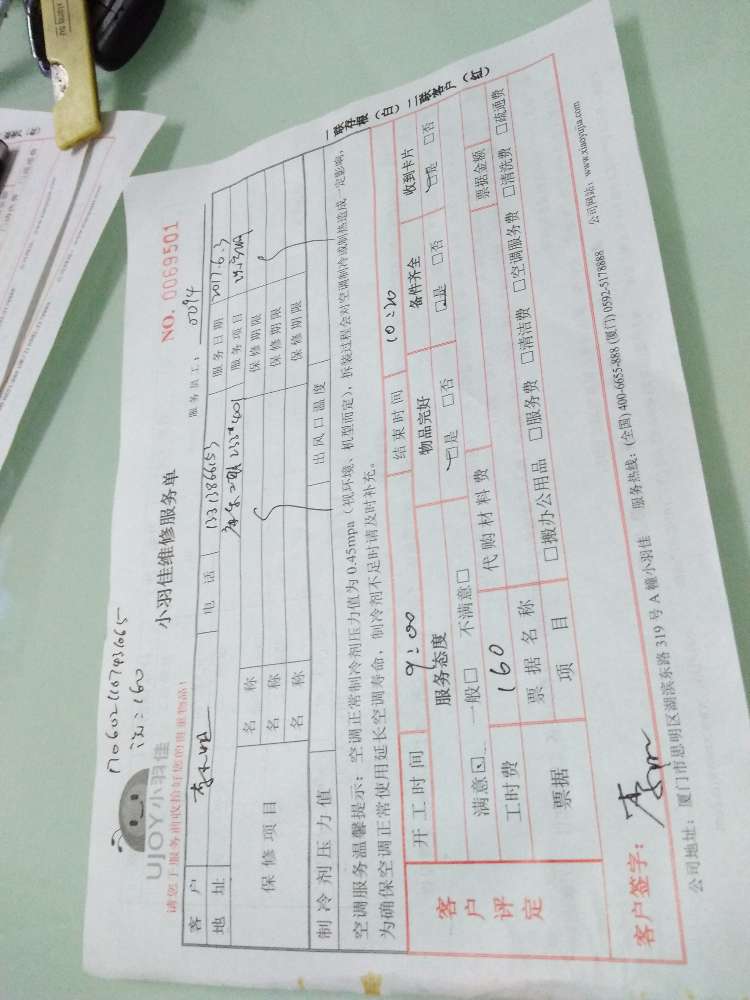 170602110743665
UJOY小羽佳
小羽佳维修服务单
NO. 0069501
请您于服务前收拾好您的贵重物品!
服务员工: 0094
客户 李小姐 电话 服务日期 2017.6.3
地址 服务项目
保修项目 名称 保修期限
名称 保修期限
名称 保修期限
制冷剂压力值 出风口温度
空调服务温馨提示:空调正常制冷剂压力值为0.45mpa(视环境、机型而定),拆装过程会对空调制冷或制热造成一定影响,
为确保空调正常使用延长空调寿命,制冷剂不足时请及时补充。
一联存根(白) 二联客户(红)
客户评定
开工时间 9:00 结束时间 10:20
服务态度 物品完好 备件齐全 收到卡片
满意☑ 一般□ 不满意□ ☑是 □否 ☑是 □否 ☑是 □否
工时费 160 代购材料费 票据金额
票据 票据名称
项目 □搬办公用品 □服务费 □清洁费 □空调服务费 □清洗费 □疏通费
客户签字: 李
公司地址:厦门市思明区湖滨东路319号A幢小羽佳 服务热线:(全国)400-6655-888 (厦门)0592-5178888 公司网站:www.xiaoyujia.com